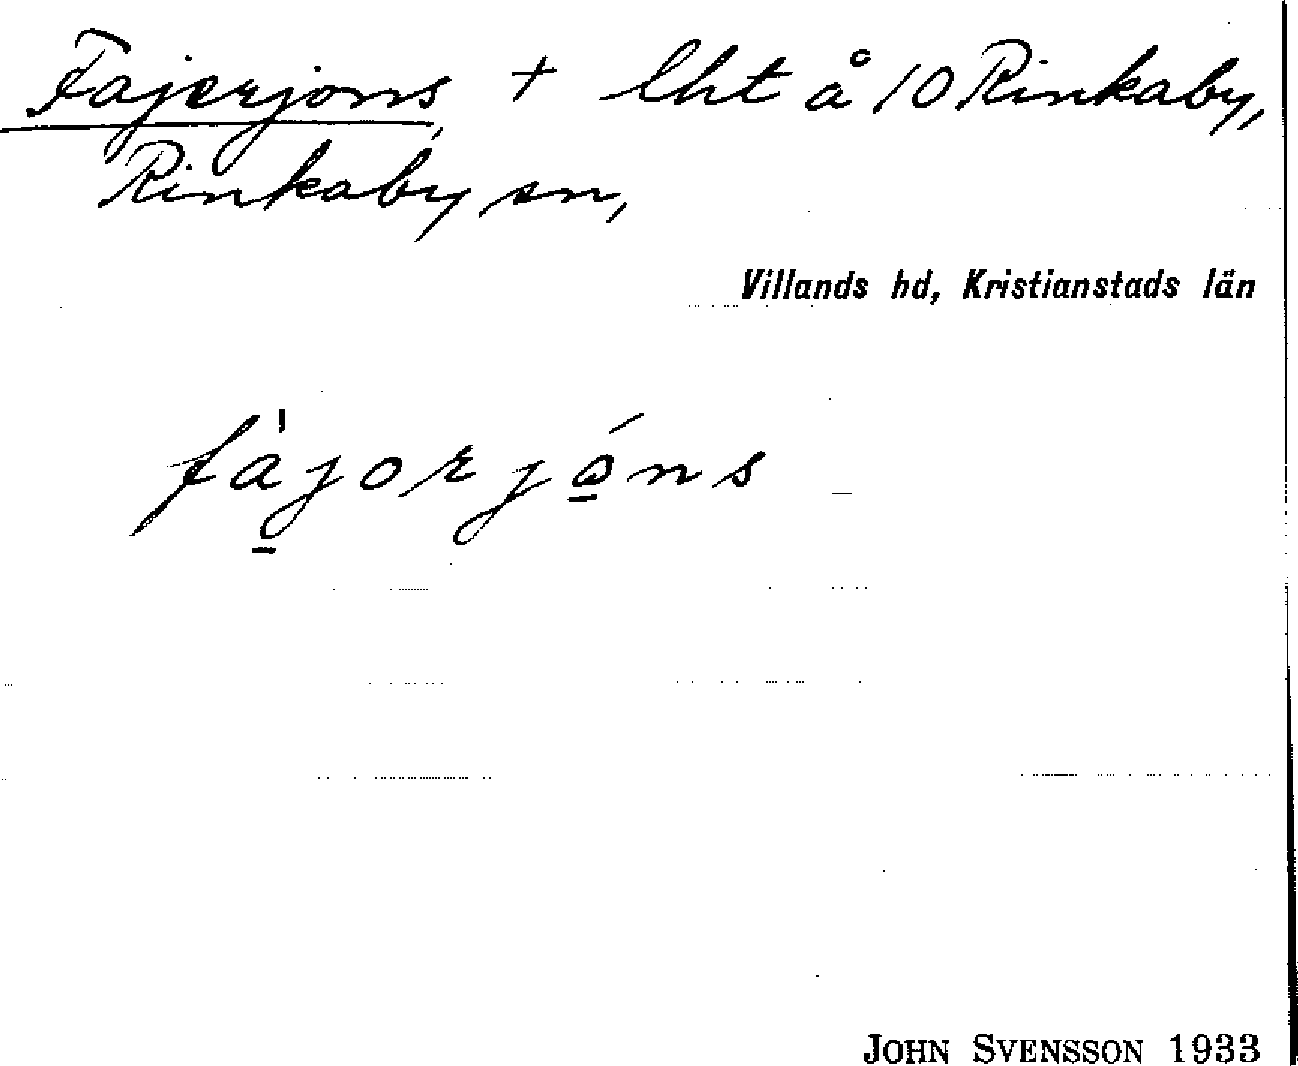 Fajerjons + lht å 10 Rinkaby,
Rinkaby sn,
Villands hd, Kristianstads län
fàjorjóns
JOHN SVENSSON 1933